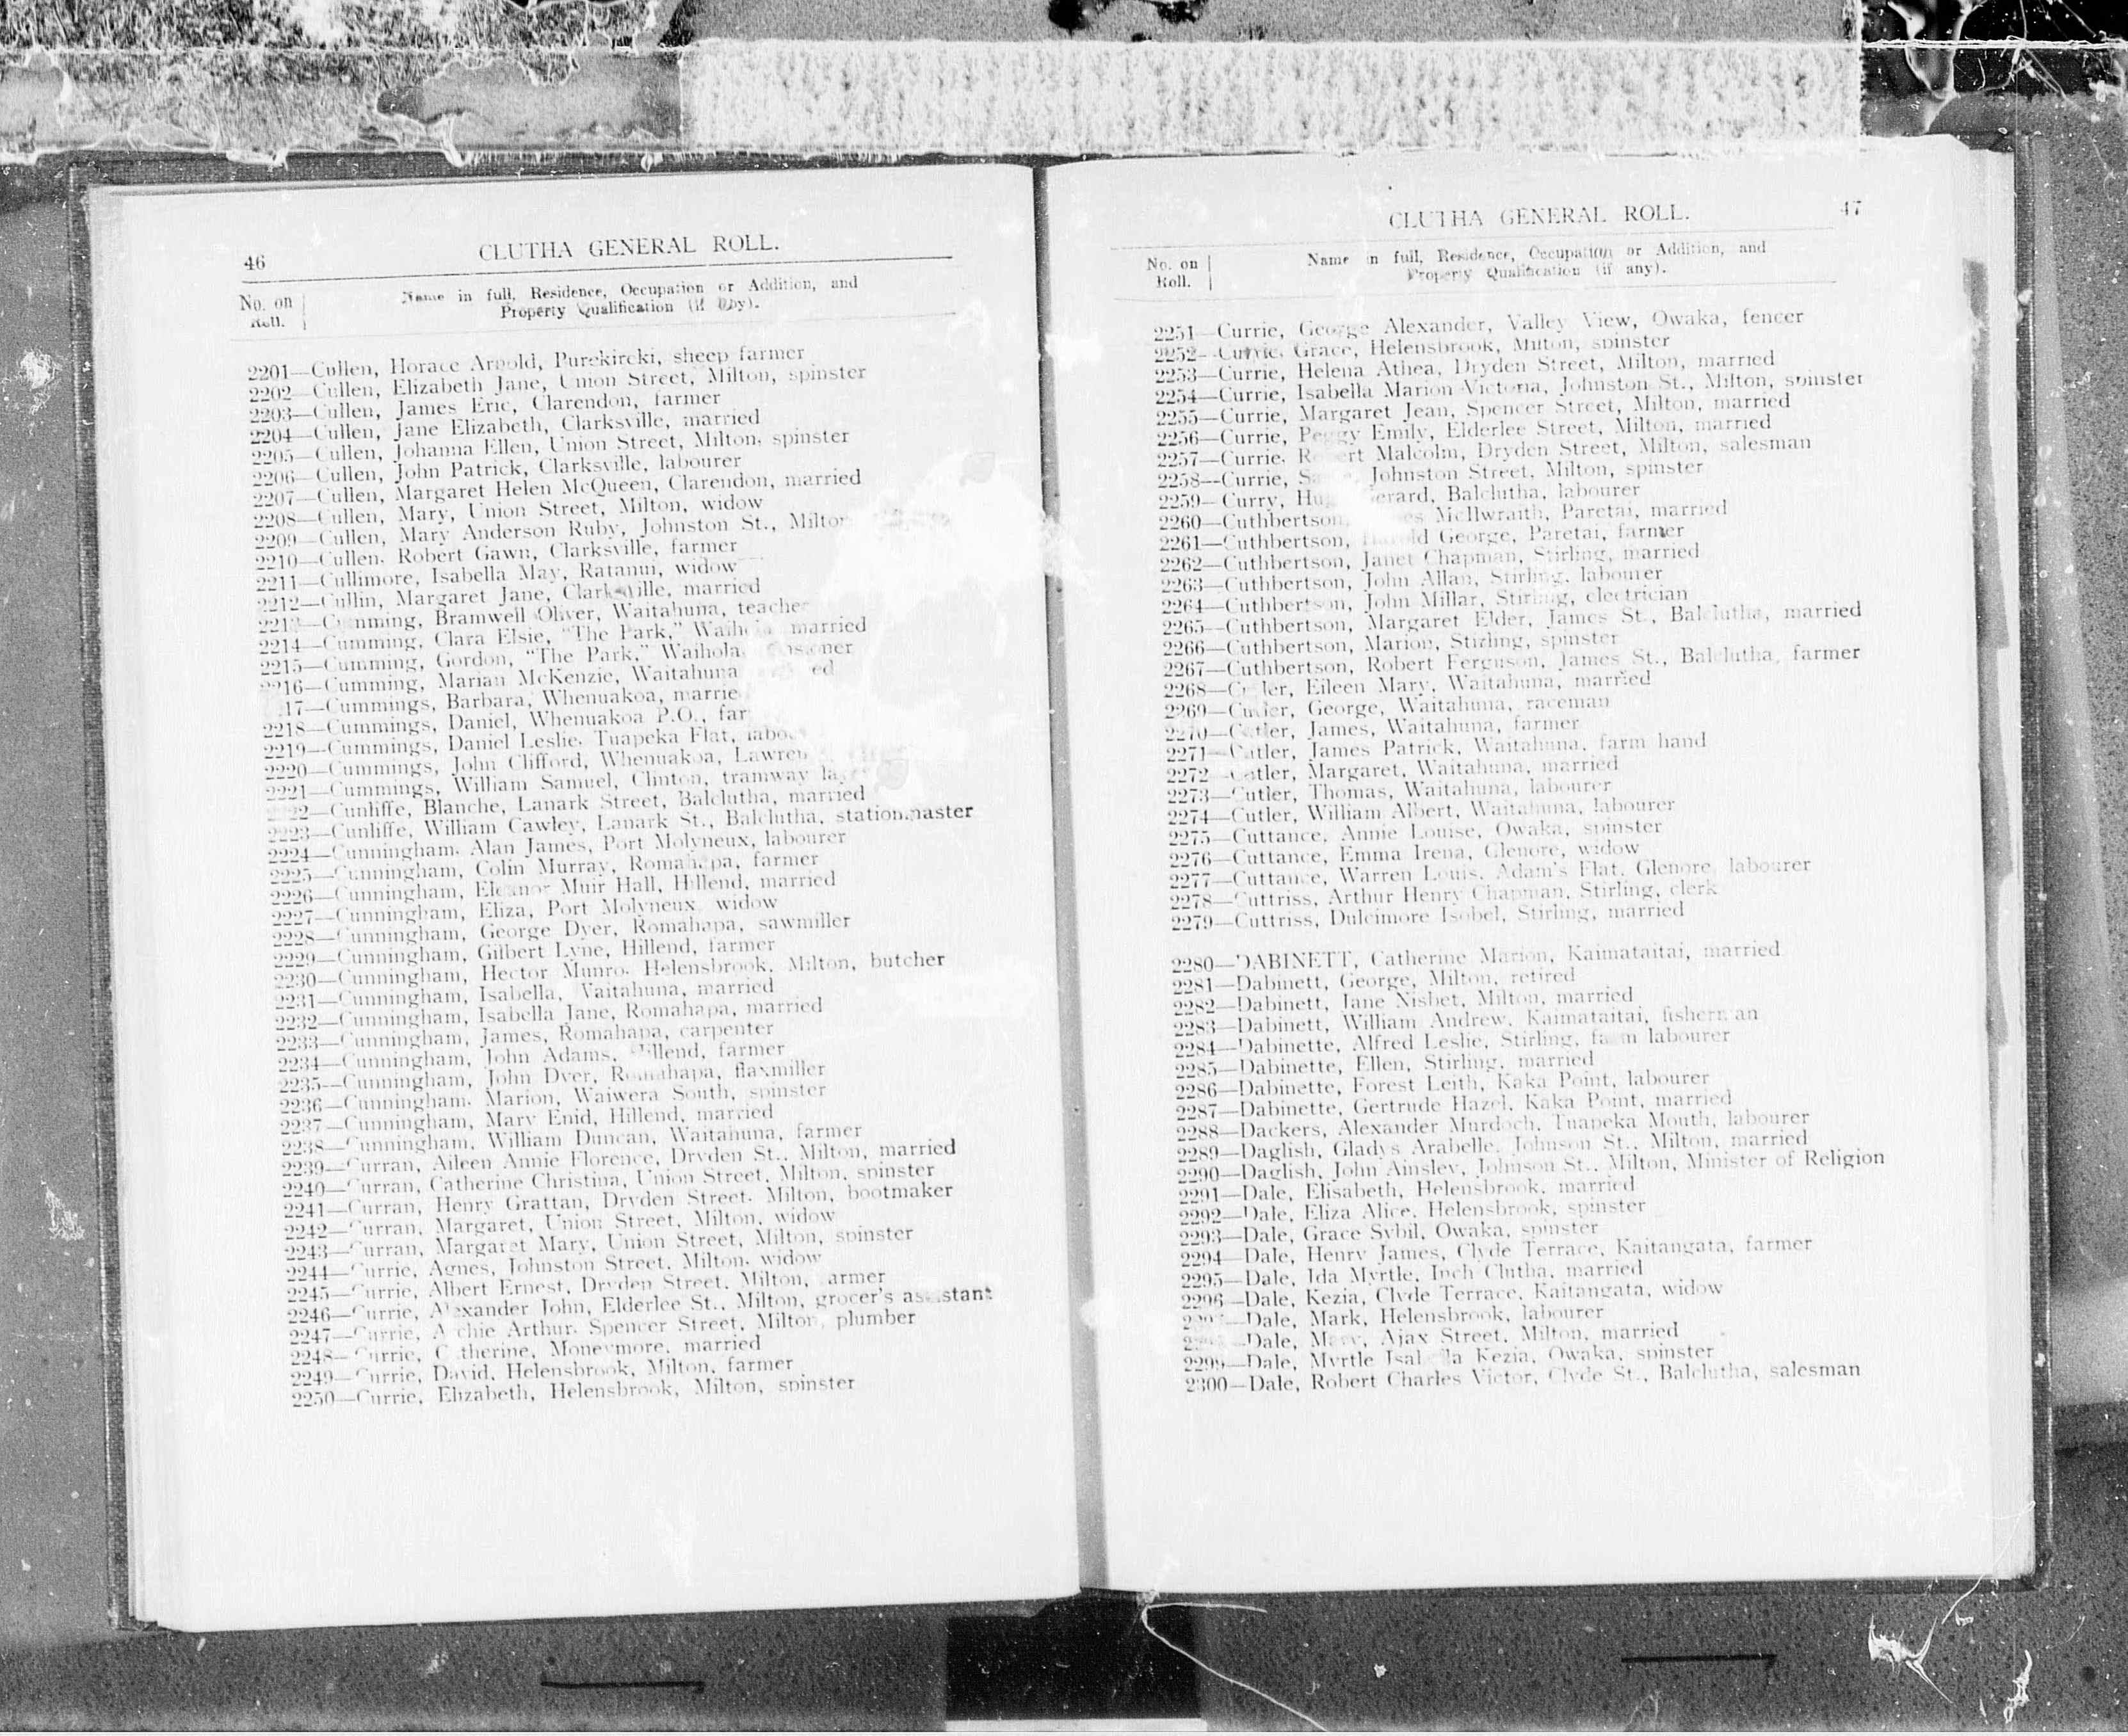 46
CLUTHA GENERAL ROLL.
No. on Roll.
Name in full, Residence, Occupation or Addition, and
Property Qualification (if any).
2201—Cullen, Horace Arnold, Purekireki, sheep farmer
2202—Cullen, Elizabeth Jane, Union Street, Milton, spinster
2203—Cullen, James Eric, Clarendon, farmer
2204—Cullen, Jane Elizabeth, Clarksville, married
2205—Cullen, Johanna Ellen, Union Street, Milton, spinster
2206—Cullen, John Patrick, Clarksville, labourer
2207—Cullen, Margaret Helen McQueen, Clarendon, married
2208—Cullen, Mary, Union Street, Milton, widow
2209—Cullen, Mary Anderson Ruby, Johnston St., Milton
2210—Cullen, Robert Gawn, Clarksville, farmer
2211—Cullimore, Isabella May, Ratanui, widow
2212—Cullin, Margaret Jane, Clarksville, married
2213—Cumming, Bramwell Oliver, Waitahuna, teacher
2214—Cumming, Clara Elsie, "The Park," Waihola, married
2215—Cumming, Gordon, "The Park," Waihola,
2216—Cumming, Marian McKenzie, Waitahuna
17—Cummings, Barbara, Whenuakoa, marrie
2218—Cummings, Daniel, Whenuakoa P.O., far
2219—Cummings, Daniel Leslie, Tuapeka Flat, labou
2220—Cummings, John Clifford, Whenuakoa, Lawren
2221—Cummings, William Samuel, Clinton, tramway layer
22—Cunliffe, Blanche, Lanark Street, Balclutha, married
2223—Cunliffe, William Cawley, Lanark St., Balclutha, stationmaster
2224—Cunningham, Alan James, Port Molyneux, labourer
2225—Cunningham, Colin Murray, Romahapa, farmer
2226—Cunningham, Eleanor Muir Hall, Hillend, married
2227—Cunningham, Eliza, Port Molyneux, widow
2228—Cunningham, George Dyer, Romahapa, sawmiller
2229—Cunningham, Gilbert Lyne, Hillend, farmer
2230—Cunningham, Hector Munro, Helensbrook, Milton, butcher
2231—Cunningham, Isabella, Waitahuna, married
2232—Cunningham, Isabella Jane, Romahapa, married
2233—Cunningham, James, Romahapa, carpenter
2234—Cunningham, John Adams, Hillend, farmer
2235—Cunningham, John Dyer, Romahapa, flaxmiller
2236—Cunningham, Marion, Waiwera South, spinster
2237—Cunningham, Mary Enid, Hillend, married
2238—Cunningham, William Duncan, Waitahuna, farmer
2239—Curran, Aileen Annie Florence, Dryden St., Milton, married
2240—Curran, Catherine Christina, Union Street, Milton, spinster
2241—Curran, Henry Grattan, Dryden Street, Milton, bootmaker
2242—Curran, Margaret, Union Street, Milton, widow
2243—Curran, Margaret Mary, Union Street, Milton, spinster
2244—Currie, Agnes, Johnston Street, Milton, widow
2245—Currie, Albert Ernest, Dryden Street, Milton, farmer
2246—Currie, Alexander John, Elderlee St., Milton, grocer's assistant
2247—Currie, Archie Arthur, Spencer Street, Milton, plumber
2248—Currie, Catherine, Moneymore, married
2249—Currie, David, Helensbrook, Milton, farmer
2250—Currie, Elizabeth, Helensbrook, Milton, spinster
CLUTHA GENERAL ROLL.
47
No. on Roll.
Name in full, Residence, Occupation or Addition, and
Property Qualification (if any).
2251—Currie, George Alexander, Valley View, Owaka, fencer
2252—Currie, Grace, Helensbrook, Milton, spinster
2253—Currie, Helena Athea, Dryden Street, Milton, married
2254—Currie, Isabella Marion Victoria, Johnston St., Milton, spinster
2255—Currie, Margaret Jean, Spencer Street, Milton, married
2256—Currie, Peggy Emily, Elderlee Street, Milton, married
2257—Currie, Robert Malcolm, Dryden Street, Milton, salesman
2258—Currie, Johnston Street, Milton, spinster
2259—Curry, Gerard, Balclutha, labourer
2260—Cuthbertson, McIlwraith, Paretai, married
2261—Cuthbertson, Harold George, Paretai, farmer
2262—Cuthbertson, Janet Chapman, Stirling, married
2263—Cuthbertson, John Allan, Stirling, labourer
2264—Cuthbertson, John Millar, Stirling, electrician
2265—Cuthbertson, Margaret Elder, James St., Balclutha, married
2266—Cuthbertson, Marion, Stirling, spinster
2267—Cuthbertson, Robert Ferguson, James St., Balclutha, farmer
2268—Cutler, Eileen Mary, Waitahuna, married
2269—Cutler, George, Waitahuna, raceman
2270—Cutler, James, Waitahuna, farmer
2271—Cutler, James Patrick, Waitahuna, farm hand
2272—Cutler, Margaret, Waitahuna, married
2273—Cutler, Thomas, Waitahuna, labourer
2274—Cutler, William Albert, Waitahuna, labourer
2275—Cuttance, Annie Louise, Owaka, spinster
2276—Cuttance, Emma Irena, Glenore, widow
2277—Cuttance, Warren Louis, Adam's Flat, Glenore, labourer
2278—Cuttriss, Arthur Henry Chapman, Stirling, clerk
2279—Cuttriss, Dulcimore Isobel, Stirling, married
2280—DABINETT, Catherine Marion, Kaimataitai, married
2281—Dabinett, George, Milton, retired
2282—Dabinett, Jane Nisbet, Milton, married
2283—Dabinett, William Andrew, Kaimataitai, fisherman
2284—Dabinette, Alfred Leslie, Stirling, farm labourer
2285—Dabinette, Ellen, Stirling, married
2286—Dabinette, Forest Leith, Kaka Point, labourer
2287—Dabinette, Gertrude Hazel, Kaka Point, married
2288—Dackers, Alexander Murdoch, Tuapeka Mouth, labourer
2289—Daglish, Gladys Arabelle, Johnson St., Milton, married
2290—Daglish, John Ainsley, Johnson St., Milton, Minister of Religion
2291—Dale, Elisabeth, Helensbrook, married
2292—Dale, Eliza Alice, Helensbrook, spinster
2293—Dale, Grace Sybil, Owaka, spinster
2294—Dale, Henry James, Clyde Terrace, Kaitangata, farmer
2295—Dale, Ida Myrtle, Inch Clutha, married
2296—Dale, Kezia, Clyde Terrace, Kaitangata, widow
2297—Dale, Mark, Helensbrook, labourer
Dale, Mary, Ajax Street, Milton, married
2299—Dale, Myrtle Isabella Kezia, Owaka, spinster
2300—Dale, Robert Charles Victor, Clyde St., Balclutha, salesman